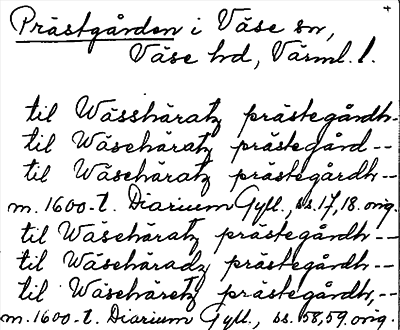 Prästgården i Väse sn,
Väse hd, Värml. l.
til Wässhäratz prästegårdh-
til Wäsehäratz prästegård --
til Wäsehäratz prästegårdh --
m. 1600-t. Diarium Gyll., ss. 17, 18. orig.
til Wäsehäratz prästegårdh --
til Wäsehäradz prästegårdh --
til Wäsehäretz prästegårdh, --
m. 1600-t. Diarium Gyll., ss. 58, 59. orig.